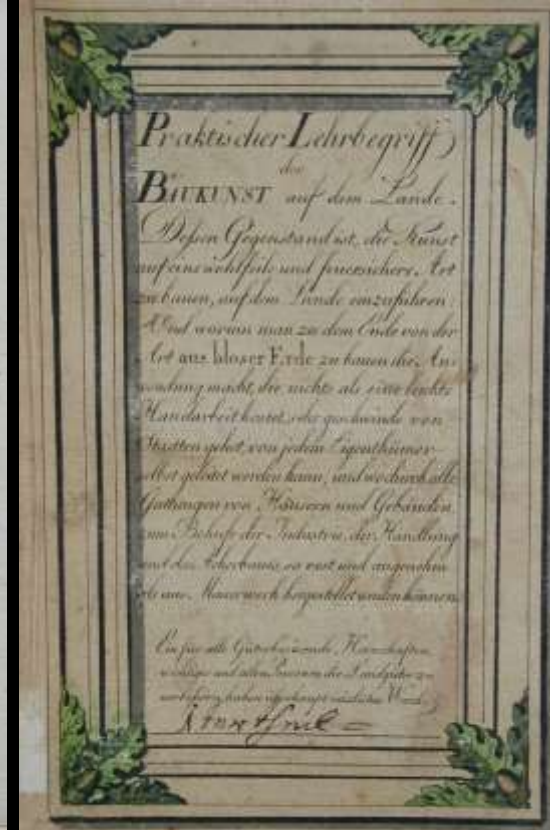 Praktischer Lehrbegriff
der
BAUKUNST auf dem Lande.
Deßen Gegenstand ist, die Kunst
auf eine wohlfeile und feuersichere Art
zu bauen, auf dem Lande einzuführen:
Und worinn man zu dem Ende von der
Art aus bloser Erde zu bauen die An-
wendung macht, die nichts als eine leichte
Handarbeit kostet, sehr geschwinde von
Statten gehet, von jedem Eigenthümer
selbst geleitet werden kann, und wodurch alle
Gattungen von Häusern und Gebäuden
zum Behufe der Industrie, der Handlung
und des Ackerbaues, so vest und angenehm
als aus Mauerwerk hergestellet werden können.
Ein für alle Güterbesizende Herrschaften
und allen die Landgüter zu
haben überhaupt nüzliches Werk.